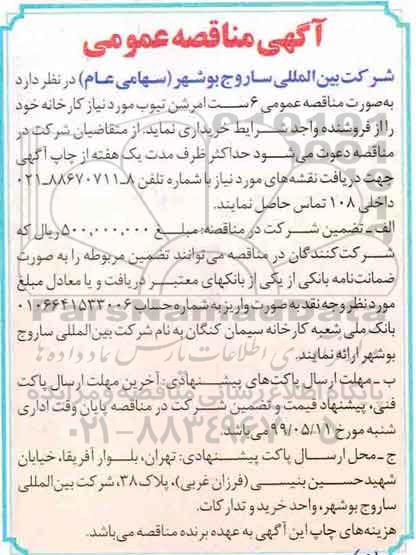 آگهی مناقصه عمومی
شرکت بین‌المللی ساروج بوشهر (سهامی عام) در نظر دارد
به‌صورت مناقصه عمومی ۶ ست امرشن تیوب مورد نیاز کارخانه خود
را از فروشنده واجد شرایط خریداری نماید. از متقاضیان شرکت در
مناقصه دعوت می‌شود حداکثر ظرف مدت یک هفته از چاپ آگهی
جهت دریافت نقشه‌های مورد نیاز با شماره تلفن ۸ـ۸۸۶۷۰۷۱۱ـ۰۲۱
داخلی ۱۰۸ تماس حاصل نمایند.
الف ـ تضمین شرکت در مناقصه: مبلغ ۵۰۰,۰۰۰,۰۰۰ ریال که
شرکت‌کنندگان در مناقصه می‌توانند تضمین مربوطه را به صورت
ضمانت‌نامه بانکی از یکی از بانکهای معتبر دریافت و یا معادل مبلغ
مورد نظر وجه نقد به صورت واریز به شماره حساب ۰۱۰۶۶۴۱۵۳۳۰۰۶
بانک ملی شعبه کارخانه سیمان کنگان به نام شرکت بین‌المللی ساروج
بوشهر ارائه نمایند.
ب ـ مهلت ارسال پاکت‌های پیشنهادی: آخرین مهلت ارسال پاکت
فنی، پیشنهاد قیمت و تضمین شرکت در مناقصه پایان وقت اداری
شنبه مورخ ۹۹/۰۵/۱۱ می‌باشد.
ج ـ محل ارسال پاکت پیشنهادی: تهران، بلوار آفریقا، خیابان
شهید حسین بنیسی (فرزان غربی)، پلاک ۳۸، شرکت بین‌المللی
ساروج بوشهر، واحد خرید و تدارکات.
هزینه‌های چاپ این آگهی به عهده برنده مناقصه می‌باشد.
ParsNamadData
پایگاه اطلاع رسانی مناقصه و مزایده
۰۲۱-۸۸۳۴۹۶۷۰-۵